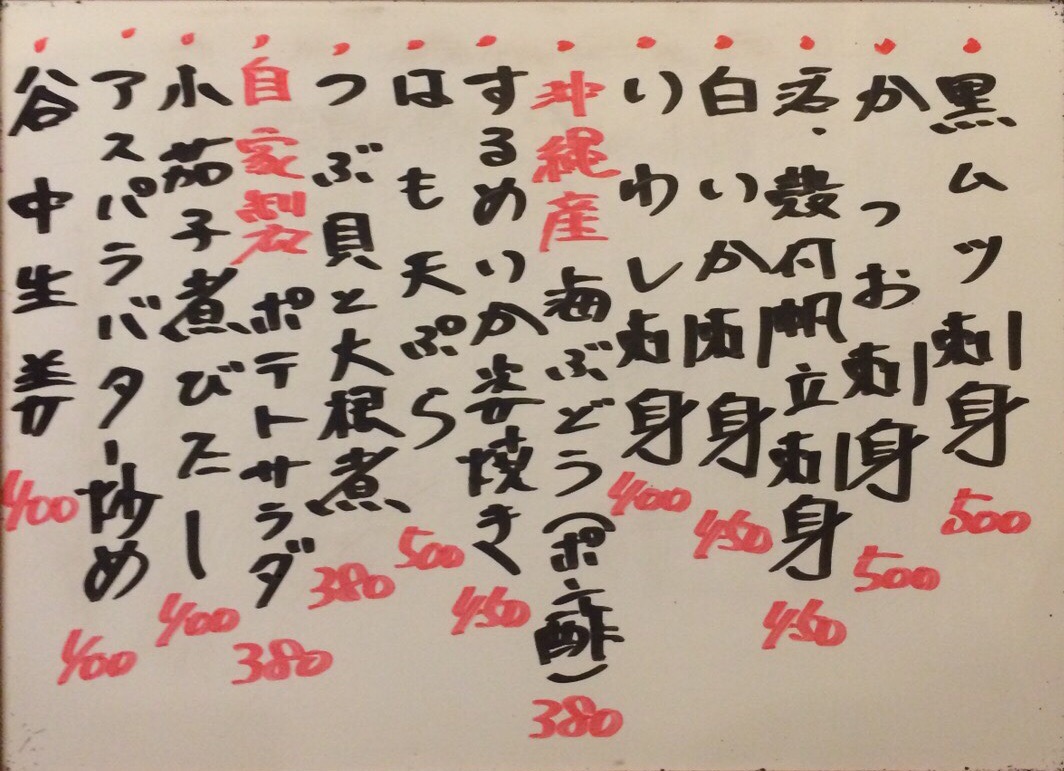 黒ムツ刺身 500
かつお刺身 500
活・殻付帆立刺身 450
白いか刺身 450
いわし刺身 400
沖縄産 海ぶどう(ポン酢) 380
するめいか姿焼き 450
はも天ぷら 500
つぶ貝と大根煮 380
自家製 ポテトサラダ 380
小茄子煮びたし 400
アスパラバター炒め 400
谷中生姜 400